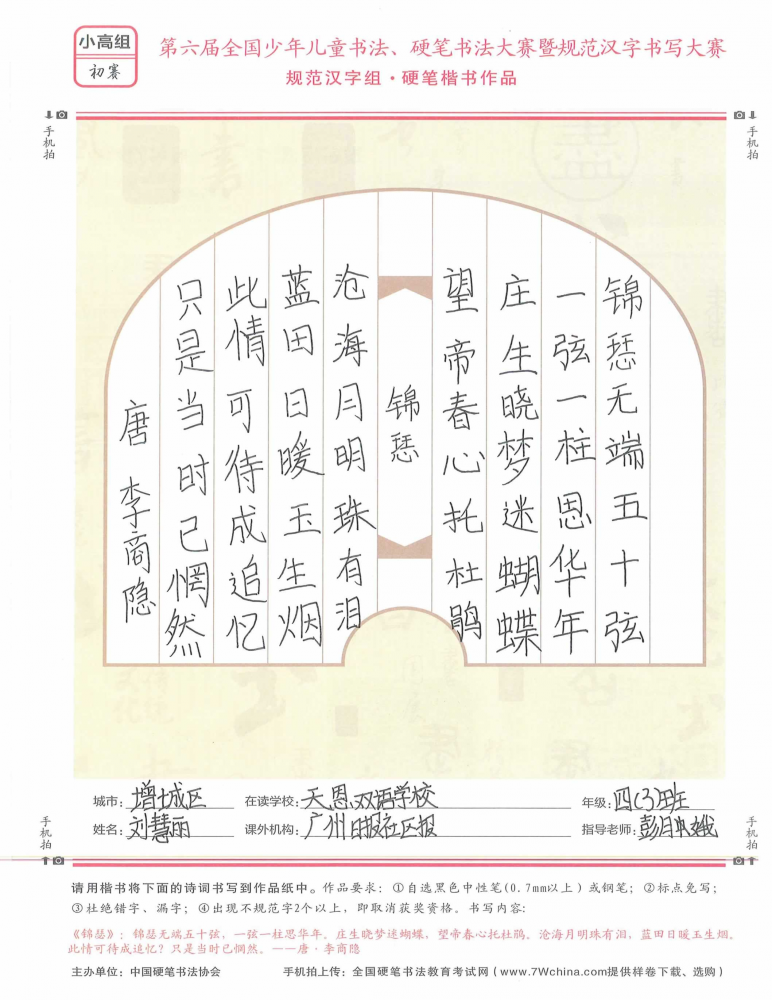 小高组
初赛
第六届全国少年儿童书法、硬笔书法大赛暨规范汉字书写大赛
规范汉字组·硬笔楷书作品
手机拍
手机拍
锦瑟无端五十弦
一弦一柱恩华年
庄生晓梦迷蝴蝶
望帝春心托杜鹃
锦瑟
沧海月明珠有泪
蓝田日暖玉生烟
此情可待成追忆
只是当时己惘然
唐 李商隐
城市：增城区 在读学校：天恩双语学校 年级：四(3)班
姓名：刘慧丽 课外机构：广州日报社区报 指导老师：彭
手机拍
手机拍
请用楷书将下面的诗词书写到作品纸中。作品要求：①自选黑色中性笔(0.7mm以上)或钢笔；②标点免写；
③杜绝错字、漏字；④出现不规范字2个以上，即取消获奖资格。书写内容：
《锦瑟》：锦瑟无端五十弦，一弦一柱思华年。庄生晓梦迷蝴蝶，望帝春心托杜鹃。沧海月明珠有泪，蓝田日暖玉生烟。
此情可待成追忆？只是当时已惘然。——唐·李商隐
主办单位：中国硬笔书法协会 手机拍上传：全国硬笔书法教育考试网（www.7Wchina.com提供样卷下载、选购）